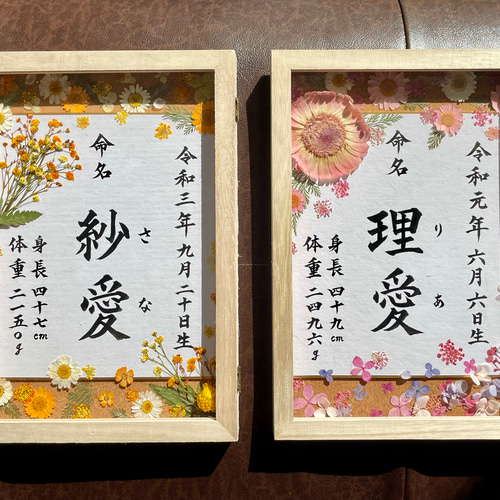 令和三年九月二十日生
命名
紗愛
さな
身長 四十七cm
体重 二一五〇g
令和元年六月六日生
命名
理愛
りあ
身長 四十九cm
体重 二四九六g